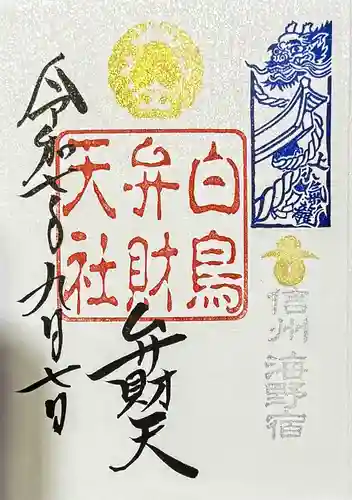 信州 海野宿
白鳥
弁財
天社
弁財天
令和七年九月七日